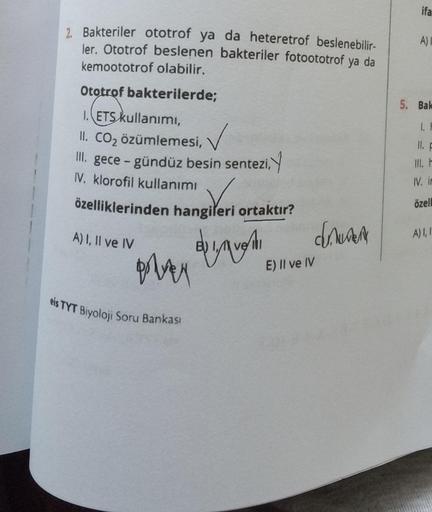 2. Bakteriler ototrof ya da heteretrof beslenebilir-
ler. Ototrof beslenen bakteriler fotoototrof ya da
kemoototrof olabilir.
Ototrof bakterilerde;
I. ETS kullanımı,
II. CO₂ özümlemesi,
III. gece – gündüz besin sentezi,
IV. klorofil kullanımı
özelliklerinden hangileri ortaktır?
A) I, II ve IV
B) I, II ve III
E) II ve IV
eis TYT Biyoloji Soru Bankası
ifa
A) I
5. Bak
I.
II. p
III. h
IV. in
özell
A) I, I